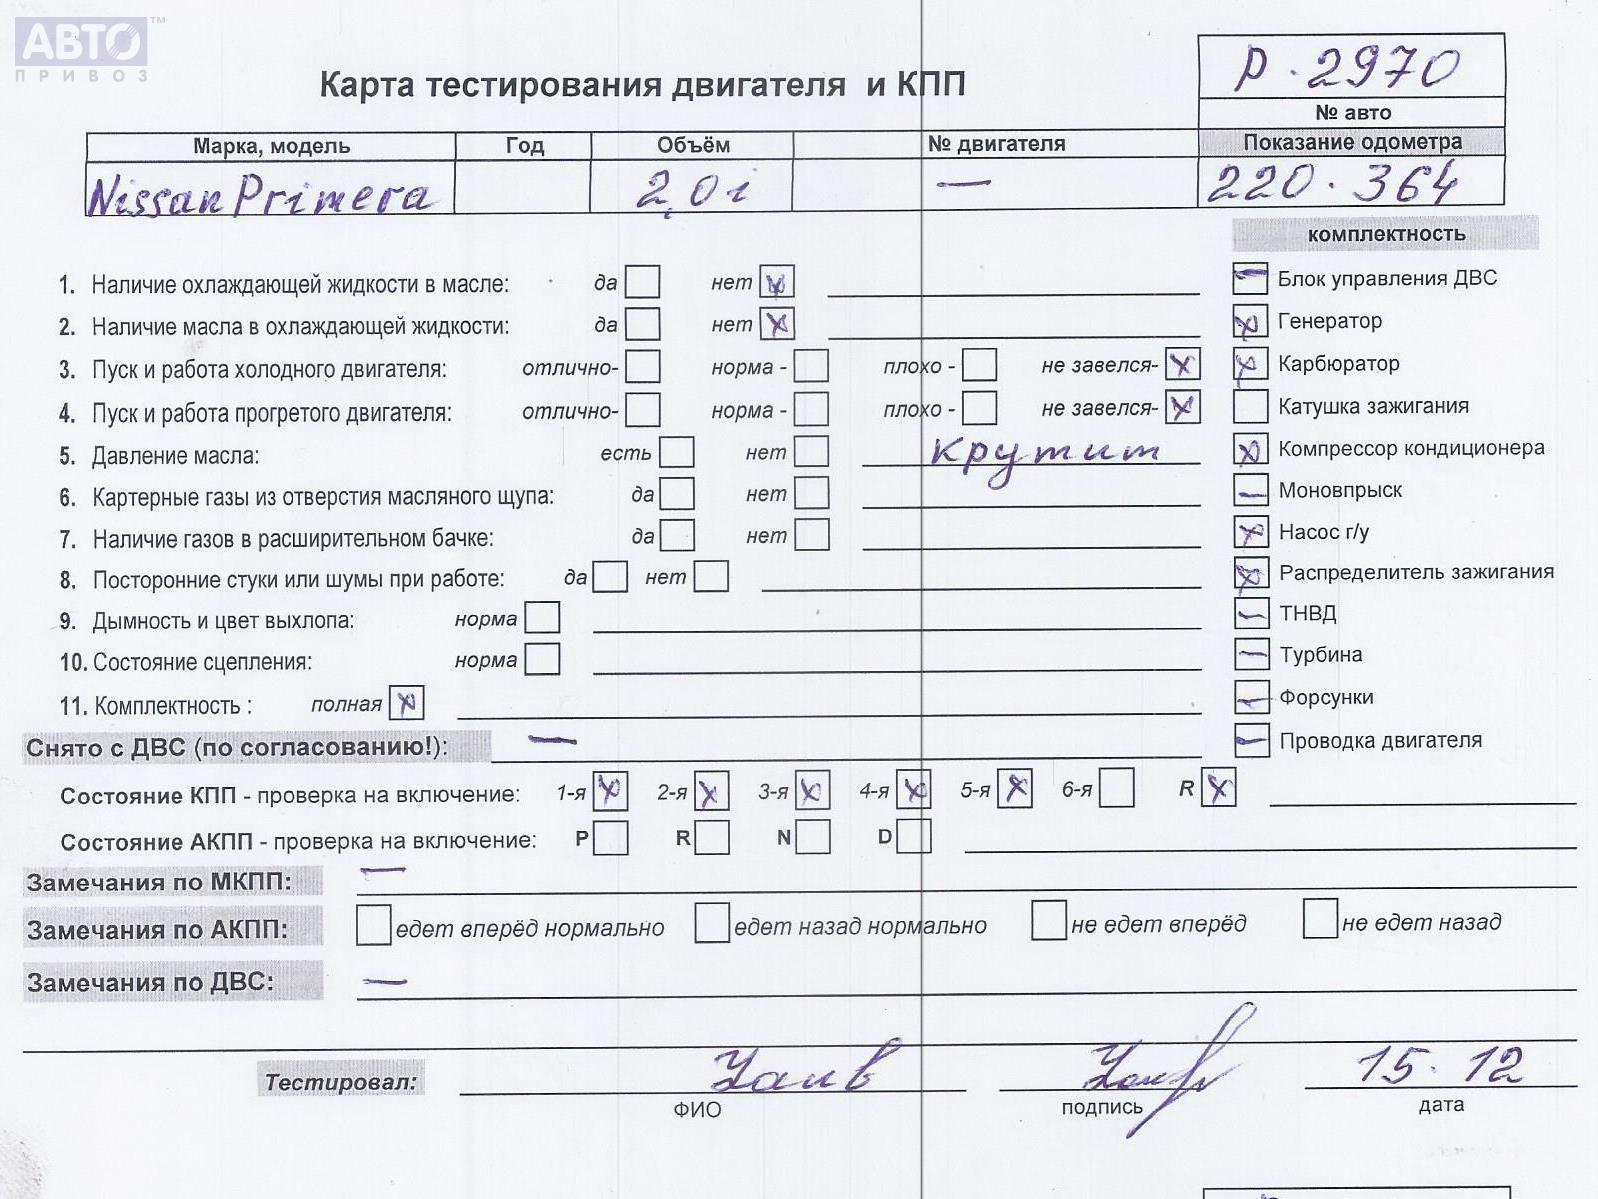 АВТО™
ПРИВОЗ
P. 2970
Карта тестирования двигателя и КПП
№ авто
Марка, модель Год Объём № двигателя Показание одометра
Nissan Primera 2,0i — 220.364
комплектность
1. Наличие охлаждающей жидкости в масле: да нет x
Блок управления ДВС
2. Наличие масла в охлаждающей жидкости: да нет x
Генератор
3. Пуск и работа холодного двигателя: отлично- норма - плохо - не завелся- x
Карбюратор
4. Пуск и работа прогретого двигателя: отлично- норма - плохо - не завелся- x
Катушка зажигания
5. Давление масла: есть нет крутит
Компрессор кондиционера
6. Картерные газы из отверстия масляного щупа: да нет
Моновпрыск
7. Наличие газов в расширительном бачке: да нет
Насос г/у
8. Посторонние стуки или шумы при работе: да нет
Распределитель зажигания
9. Дымность и цвет выхлопа: норма
ТНВД
10. Состояние сцепления: норма
Турбина
11. Комплектность : полная x
Форсунки
Снято с ДВС (по согласованию!): —
Проводка двигателя
Состояние КПП - проверка на включение: 1-я x 2-я x 3-я x 4-я x 5-я x 6-я R x
Состояние АКПП - проверка на включение: P R N D
Замечания по МКПП: —
Замечания по АКПП: едет вперёд нормально едет назад нормально не едет вперёд не едет назад
Замечания по ДВС: —
Тестировал: 15.12
ФИО подпись дата